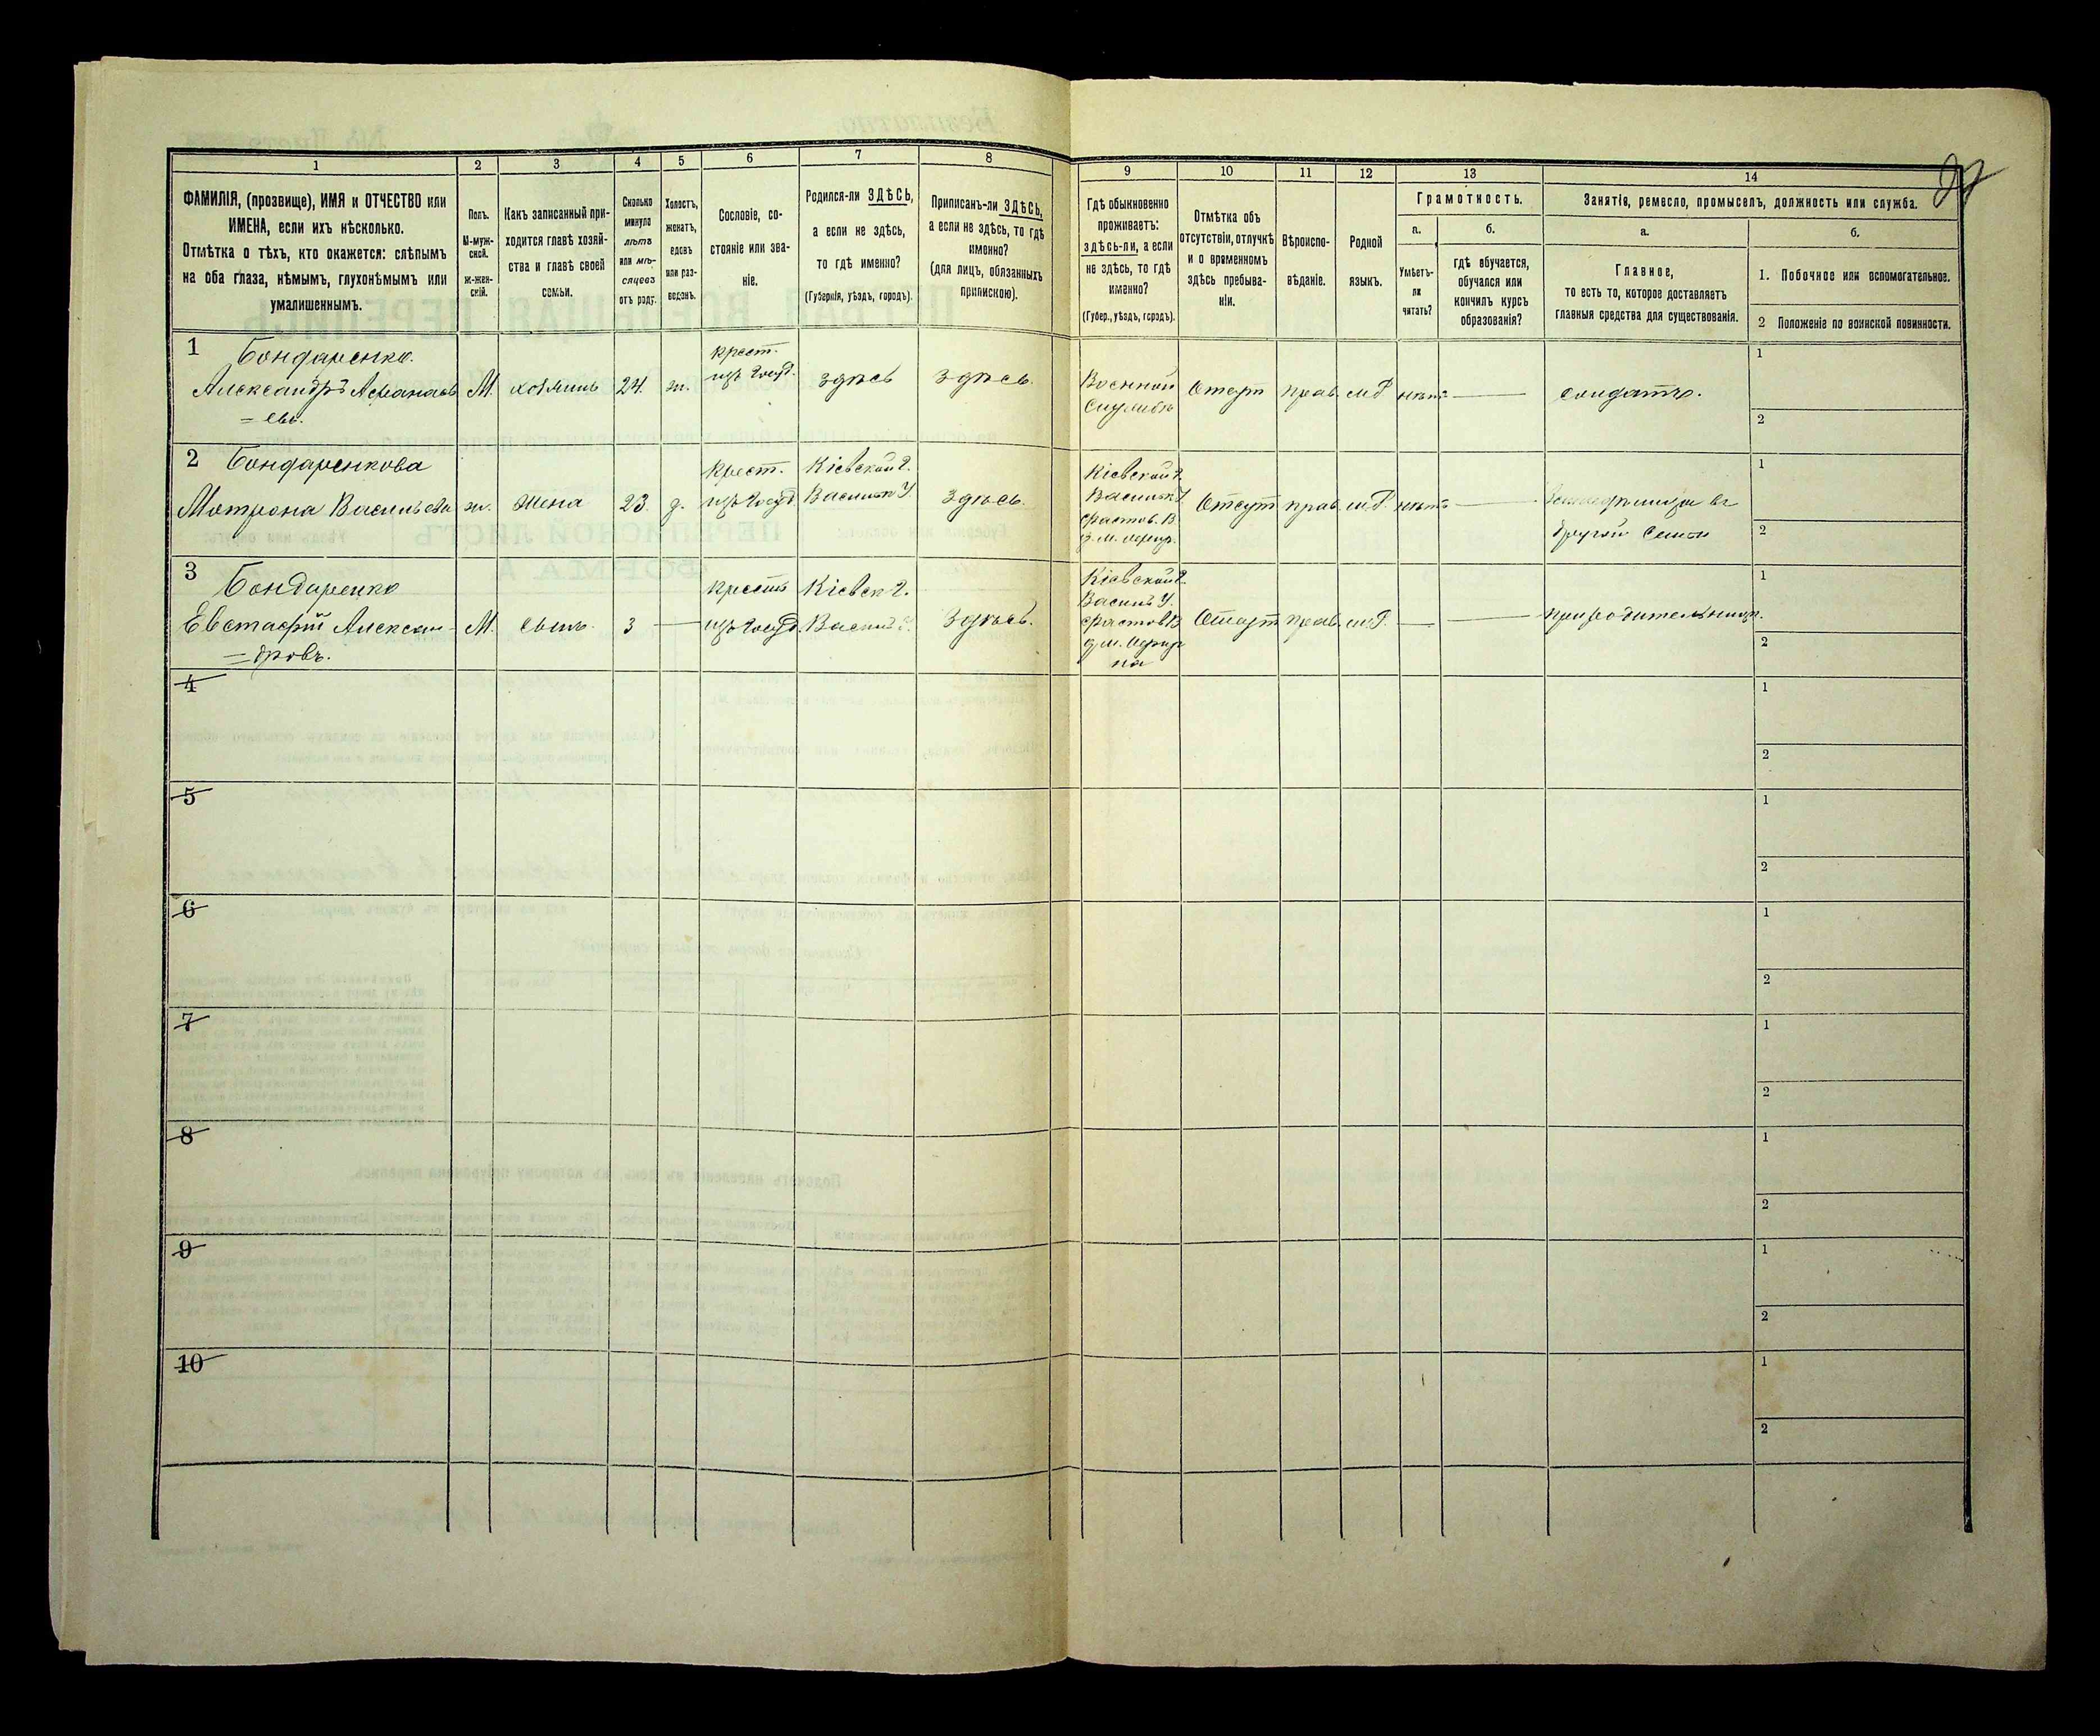 1 2 3 4 5 6 7 8 9 10 11 12 13 14
ФАМИЛІЯ, (прозвище), ИМЯ и ОТЧЕСТВО или
ИМЕНА, если ихъ нѣсколько.
Отмѣтка о тѣхъ, кто окажется: слѣпымъ
на оба глаза, нѣмымъ, глухонѣмымъ или
умалишеннымъ.
Полъ.
М-муж-
ской.
ж-жен-
скій.
Какъ записанный при-
ходится главѣ хозяй-
ства и главѣ своей
семьи.
Сколько
минуло
лѣтъ
или мѣ-
сяцевъ
отъ роду.
Холостъ,
женатъ,
вдовъ
или раз-
веденъ.
Сословіе, со-
стояніе или зва-
ніе.
Родился-ли ЗДѢСЬ,
а если не здѣсь,
то гдѣ именно?
(Губернія, уѣздъ, городъ).
Приписанъ-ли ЗДѢСЬ,
а если не здѣсь, то гдѣ
именно?
(для лицъ, обязанныхъ
припискою).
Гдѣ обыкновенно
проживаетъ:
здѣсь-ли, а если
не здѣсь, то гдѣ
именно?
(Губер., уѣздъ, городъ).
Отмѣтка объ
отсутствіи, отлучкѣ
и о временномъ
здѣсь пребыва-
ніи.
Вѣроиспо-
вѣданіе.
Родной
языкъ.
Грамотность.
а.
Умѣетъ-
ли
читать?
б.
гдѣ обучается,
обучался или
кончилъ курсъ
образованія?
Занятія, ремесло, промыселъ, должность или служба.
а.
Главное,
то есть то, которое доставляетъ
главныя средства для существованія.
б.
1. Побочное или вспомогательное.
2 Положеніе по воинской повинности.
1 Бондаренко
Александръ Афанась
= евъ.
М.
хозяинъ
24.
ж.
крест.
изъ Госуд.
здѣсь
здѣсь.
Военной
Службѣ
Отсут
прав.
м.Р.
нѣтъ
солдатъ.
1
2
2 Бондаренкова
Мотрона Васильева
ж.
жена
23.
з.
Крест.
изъ Госуд.
Кіевской г.
Васильк У.
здѣсь.
Кіевской г.
Васильк У
Фастов. В.
Отсут
прав.
м.Р.
нѣтъ
въ
другой Семьи
1
2
3 Бондаренко
Евстафій Алексан-
=дровъ.
М.
сынъ.
3
крестъ
изъ Госуд.
Кіевск г.
Васильк У.
здѣсь.
Кіевской г.
Васильк У.
Фастов В
Отсут
прав.
м.Р.
при родительницѣ.
1
2
4
1
2
5
1
2
6
1
2
7
1
2
8
1
2
9
1
2
10
1
2